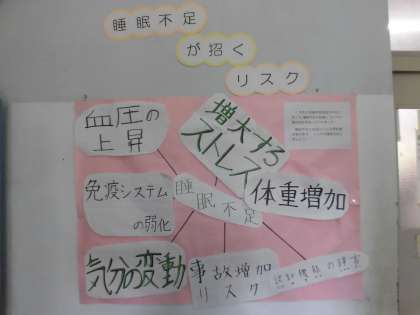 睡眠不足
が招く
リスク
血圧の
上昇
増大する
ストレス
免疫システム
の弱化
睡眠
不足
体重増加
気分の変動
事故増加
リスク
認知機能の障害